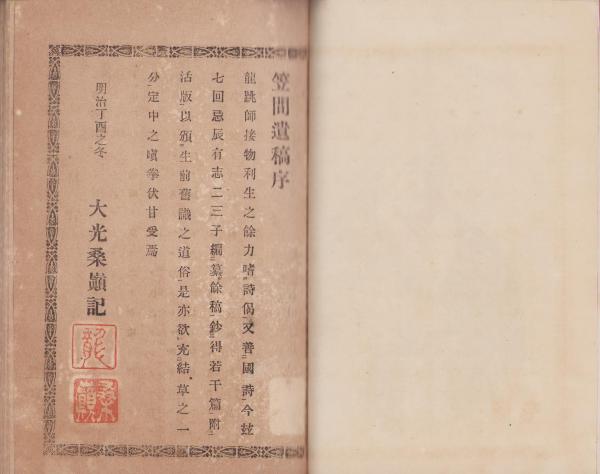 笠間遺稿序
龍跳師接物利生之餘力嗜詩偈又善國詩今玆
七回忌辰有志二三子編纂餘稿鈔得若干篇附
活版以頒生前舊識之道俗是亦欲充結草之一
分定中之嗔拳伏甘受焉
明治丁酉之冬
大光桑巓記